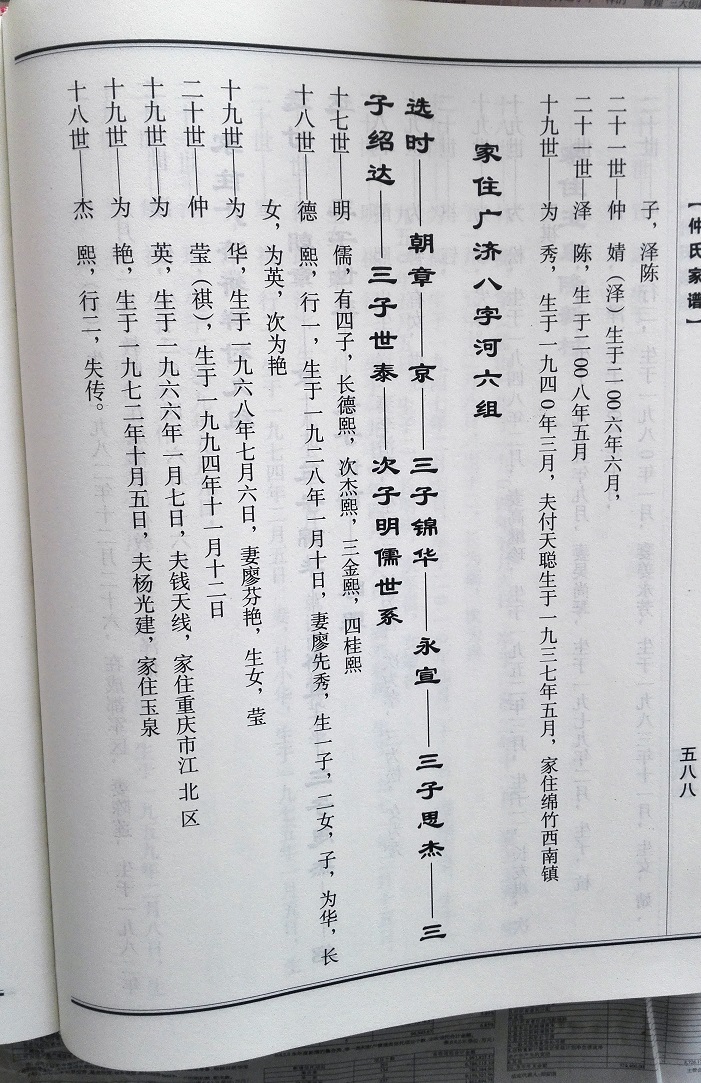 【仲氏家谱】
五八八
子，泽陈
二十一世—仲　婧（泽）生于二00六年六月，
二十世—泽　陈，生于二00八年五月
十九世——为　秀，生于一九四0年三月，夫付天聪生于一九三七年五月，家住绵竹西南镇
家住广济八字河六组
选时——朝章——京——三子锦华——永宣——三子思杰——三
子绍达——三子世泰——次子明儒世系
十七世——明　儒，有四子，长德熙，次杰熙，三金熙，四桂熙
十八世——德　熙，行一，生于一九二八年一月十日，妻廖先秀，生一子，二女，子，为华，长
女，为英，次为艳
十九世——为　华，生于一九六八年七月六日，妻廖芬艳，生女，莹
二十世——仲　莹（祺），生于一九九四年十一月十二日
十九世——为　英，生于一九六六年一月七日，夫钱天线，家住重庆市江北区
十九世——为　艳，生于一九七二年十月五日，夫杨光建，家住玉泉
十八世——杰　熙，行二，失传。